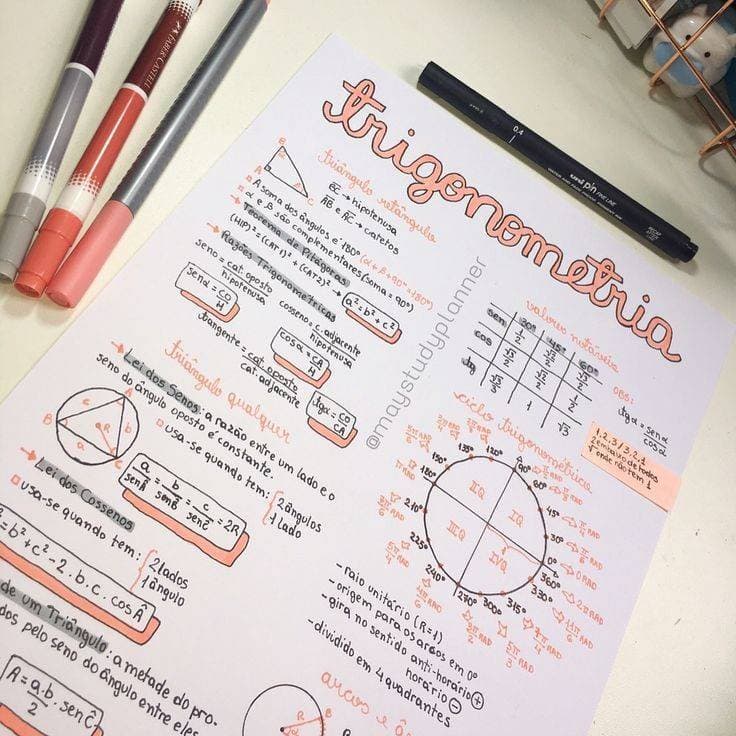 FABER-CASTELL
0.4
uni pin FINE LINE
trigonometria
triângulo retângulo
B
A
C
BC → hipotenusa
AB e AC → catetos
A soma dos ângulos é 180°
α e β são complementares (soma = 90°)
(α + β + 90° = 180°)
Teorema de Pitágoras
(HIP)² = (CAT1)² + (CAT2)² → a² = b² + c²
Razões Trigonométricas
seno = cat. oposto / hipotenusa
cosseno = c. adjacente / hipotenusa
tangente = cat. oposto / cat. adjacente
senα = CO / H
cosα = CA / H
tgα = CO / CA
@maystudyplanner
triângulo qualquer
Lei dos Senos: a razão entre um lado e o
seno do ângulo oposto é constante.
usa-se quando tem: { 2 ângulos
1 lado
A
B
C
a
b
c
R
a / senÂ = b / senB̂ = c / senĈ = 2R
Lei dos Cossenos
usa-se quando tem: { 2 lados
1 ângulo
= b² + c² - 2. b. c. cos Â
de um Triângulo: a metade do pro-
dos pelo seno do ângulo entre eles
A = a.b. senĈ / 2
valores notáveis
30° 45° 60°
sen 1/2 √2/2 √3/2
cos √3/2 √2/2 1/2
tg √3/3 1 √3
OBS:
tgα = senα / cosα
1,2,3/3,2,1
2 embaixo de todos
√ onde não tem 1
ciclo trigonométrico
90°
60°
45°
30°
0°
360°
330°
315°
300°
270°
240°
225°
210°
180°
150°
135°
120°
IQ
IIQ
IIIQ
IVQ
0 RAD
2π RAD
- raio unitário (R=1)
- origem para os arcos em 0°
- gira no sentido anti-horário +
horário -
- dividido em 4 quadrantes
arcos e
R
B
α